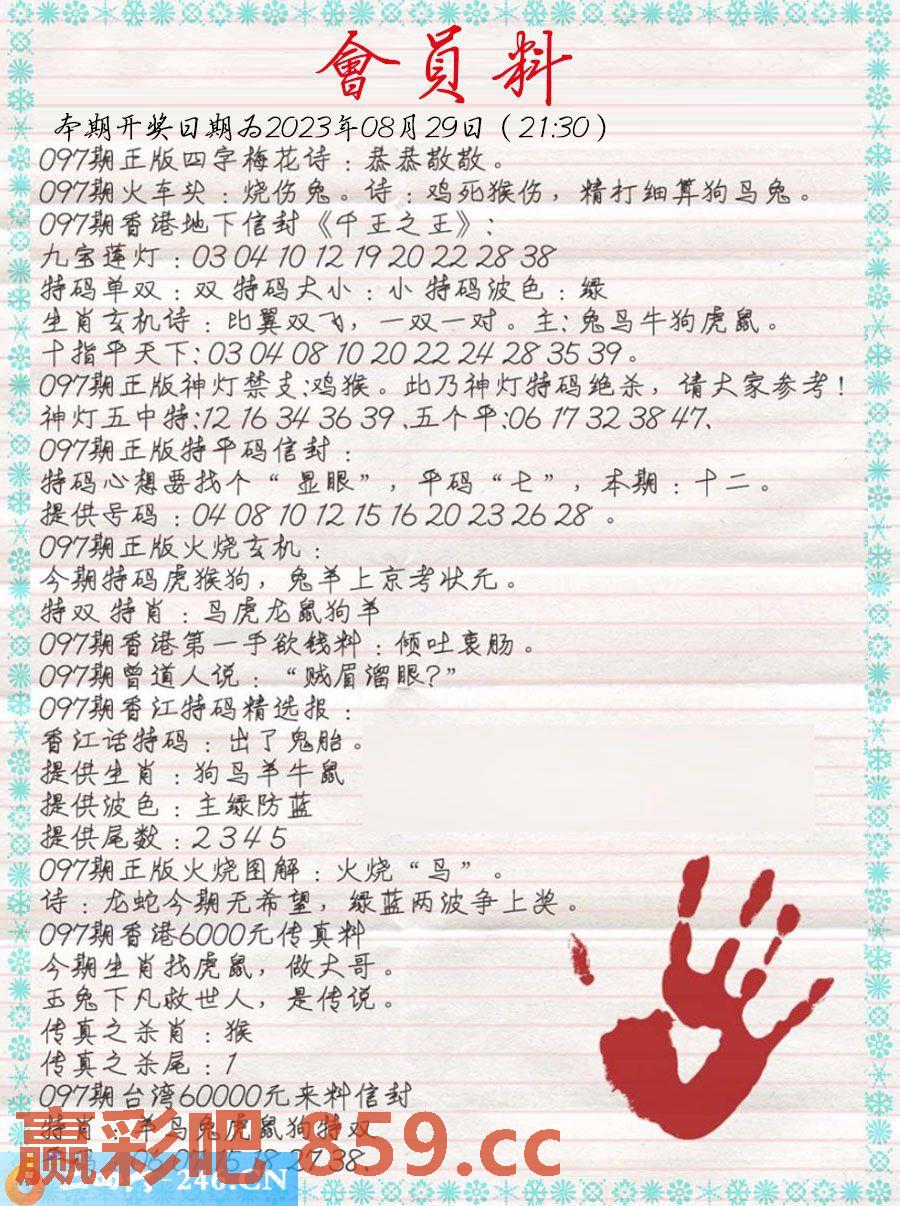 會員料
本期开奖日期为2023年08月29日（21:30）
097期正版四字梅花诗：恭恭敬敬。
097期火车头：烧伤兔。诗：鸡死猴伤，精打细算狗马兔。
097期香港地下信封《千王之王》:
九宝莲灯：03 04 10 12 19 20 22 28 38
特码单双：双 特码大小：小 特码波色：绿
生肖玄机诗：比翼双飞，一双一对。主:兔马牛狗虎鼠。
十指平天下:03 04 08 10 20 22 24 28 35 39。
097期正版神灯禁支:鸡猴。此乃神灯特码绝杀，请大家参考！
神灯五中特:12 16 34 36 39、五个平:06 17 32 38 47、
097期正版特平码信封：
特码心想要找个“显眼”，平码“七”，本期：十二。
提供号码：04 08 10 12 15 16 20 23 26 28 。
097期正版火烧玄机：
今期特码虎猴狗，兔羊上京考状元。
特双 特肖：马虎龙鼠狗羊
097期香港第一手欲钱料：倾吐衷肠。
097期曾道人说：“贼眉溜眼?”
097期香江特码精选报：
香江话特码：出了鬼胎。
提供生肖：狗马羊牛鼠
提供波色：主绿防蓝
提供尾数：2 3 4 5
097期正版火烧图解：火烧“鸟”。
诗：龙蛇今期无希望，绿蓝两波争上奖。
097期香港6000元传真料
今期生肖找虎鼠，做大哥。
玉兔下凡救世人，是传说。
传真之杀肖：猴
传真之杀尾：1
097期台湾60000元来料信封
特肖：羊马兔虎鼠狗特双
赢彩吧.859.cc
246.CN